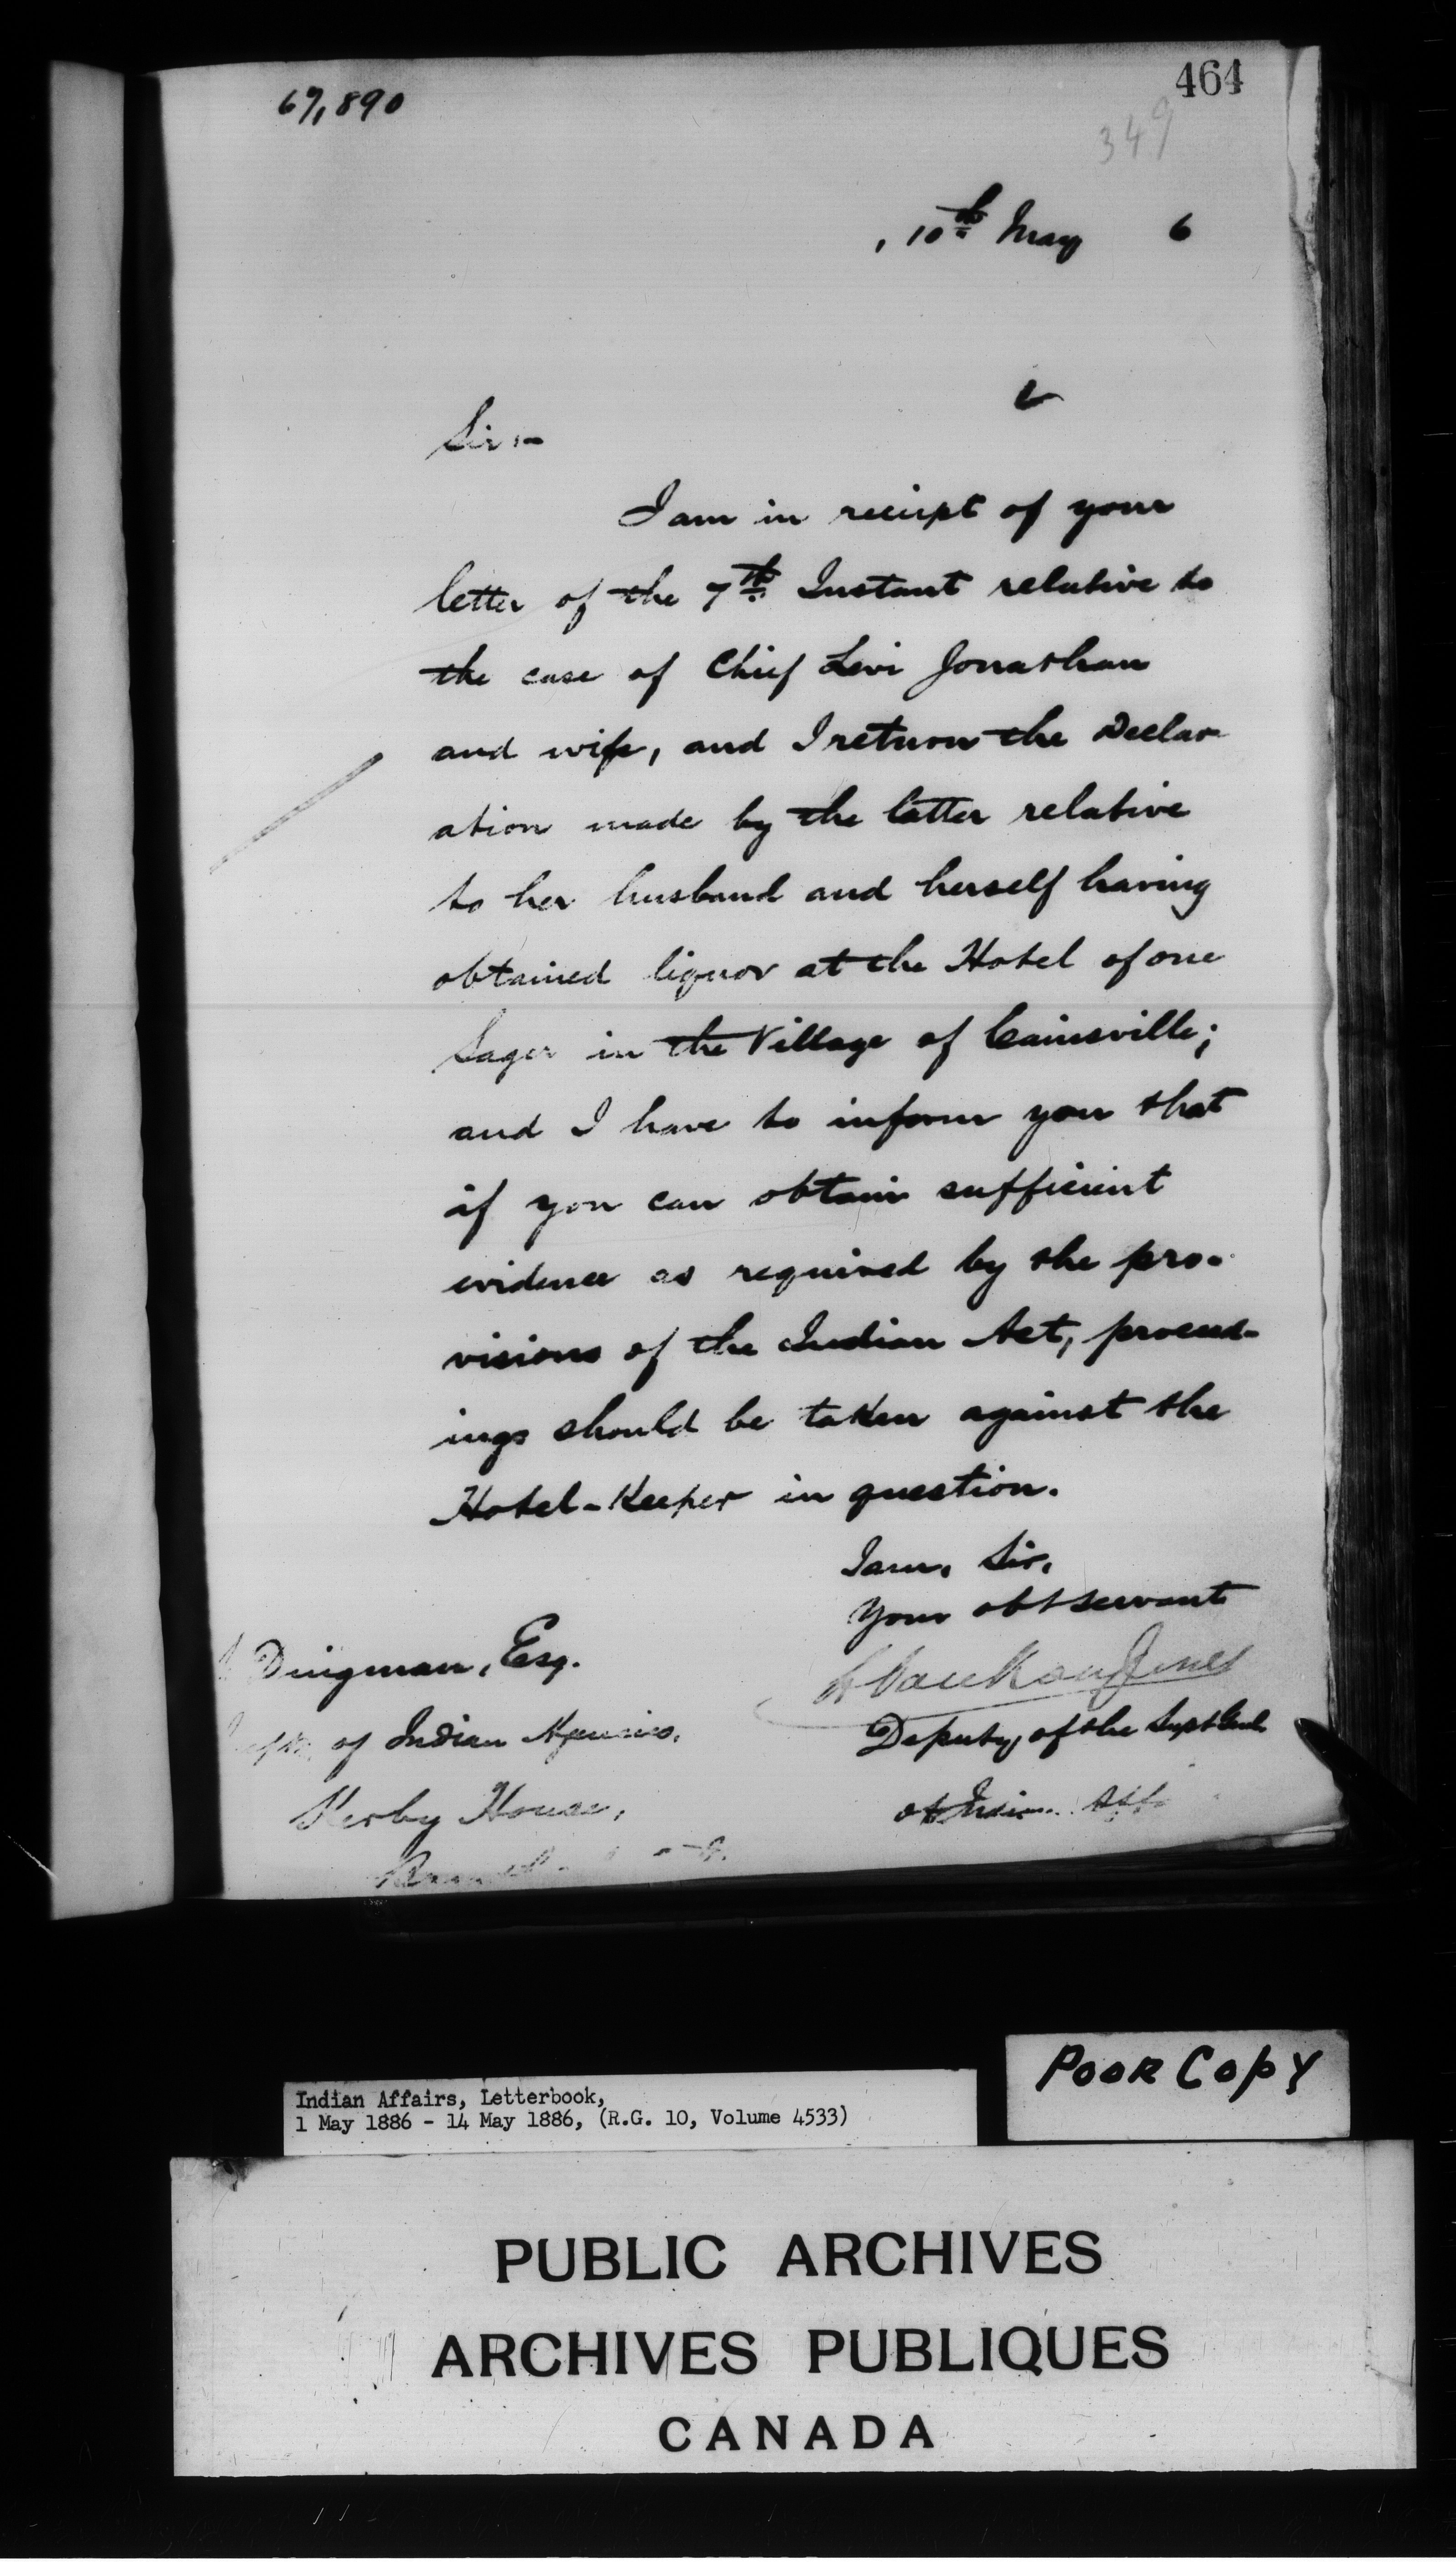 464
67,890
349
, 10th May 6
Sir:-
I am in receipt of your
letter of the 7th Instant relative to
the case of Chief Levi Jonathan
and wife, and I return the Declar-
ation made by the latter relative
to her husband and herself having
obtained liquor at the Hotel of one
Sager in the Village of Cainsville;
and I have to inform you that
if you can obtain sufficient
evidence as required by the pro-
visions of the Indian Act, proceed-
ings should be taken against the
Hotel-Keeper in question.
I am, Sir,
Your obt servant
L Vankoughnet
Deputy of the Supt Genl
of Indian Aff
Dingman, Esq.
of Indian Agencies,
Kerby House,
Poor Copy
Indian Affairs, Letterbook,
1 May 1886 - 14 May 1886, (R.G. 10, Volume 4533)
PUBLIC ARCHIVES
ARCHIVES PUBLIQUES
CANADA